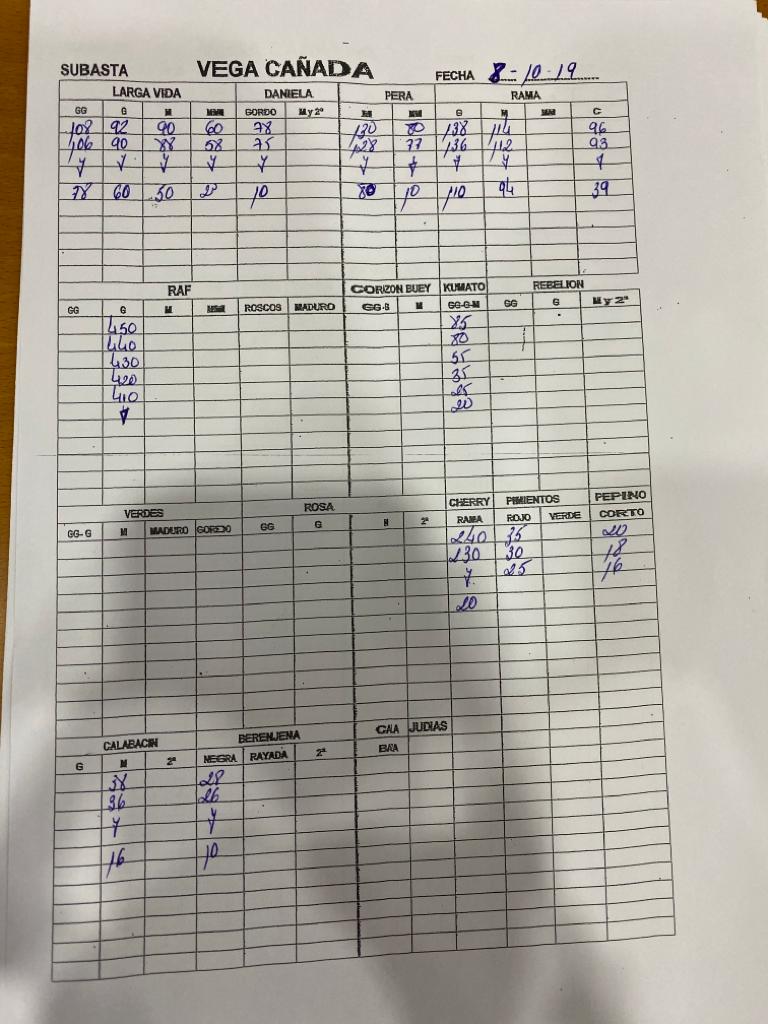 SUBASTA VEGA CAÑADA FECHA 8-10-19
LARGA VIDA DANIELA PERA RAMA
GG G M MM GORDO M y 2ª M MM G M MM C
108 92 90 60 78 130 80 138 114 96
106 90 88 58 75 128 77 136 112 93
78 60 50 10 80 10 110 94 39
RAF CORIZON BUEY KUMATO REBELION
GG G M MM ROSCOS MADURO GG-G M GG-G-M GG G M y 2ª
450 85
440 80
430 55
420 35
410 25
20
VERDES ROSA CHERRY PIMIENTOS PEPINO
GG-G M MADURO GORDO GG G M 2ª RAMA ROJO VERDE CORTO
240 35 20
230 30 18
25 16
20
CALABACIN BERENJENA CAIA JUDIAS
G M 2ª NEGRA RAYADA 2ª BAIA
38 28
36 26
16 10